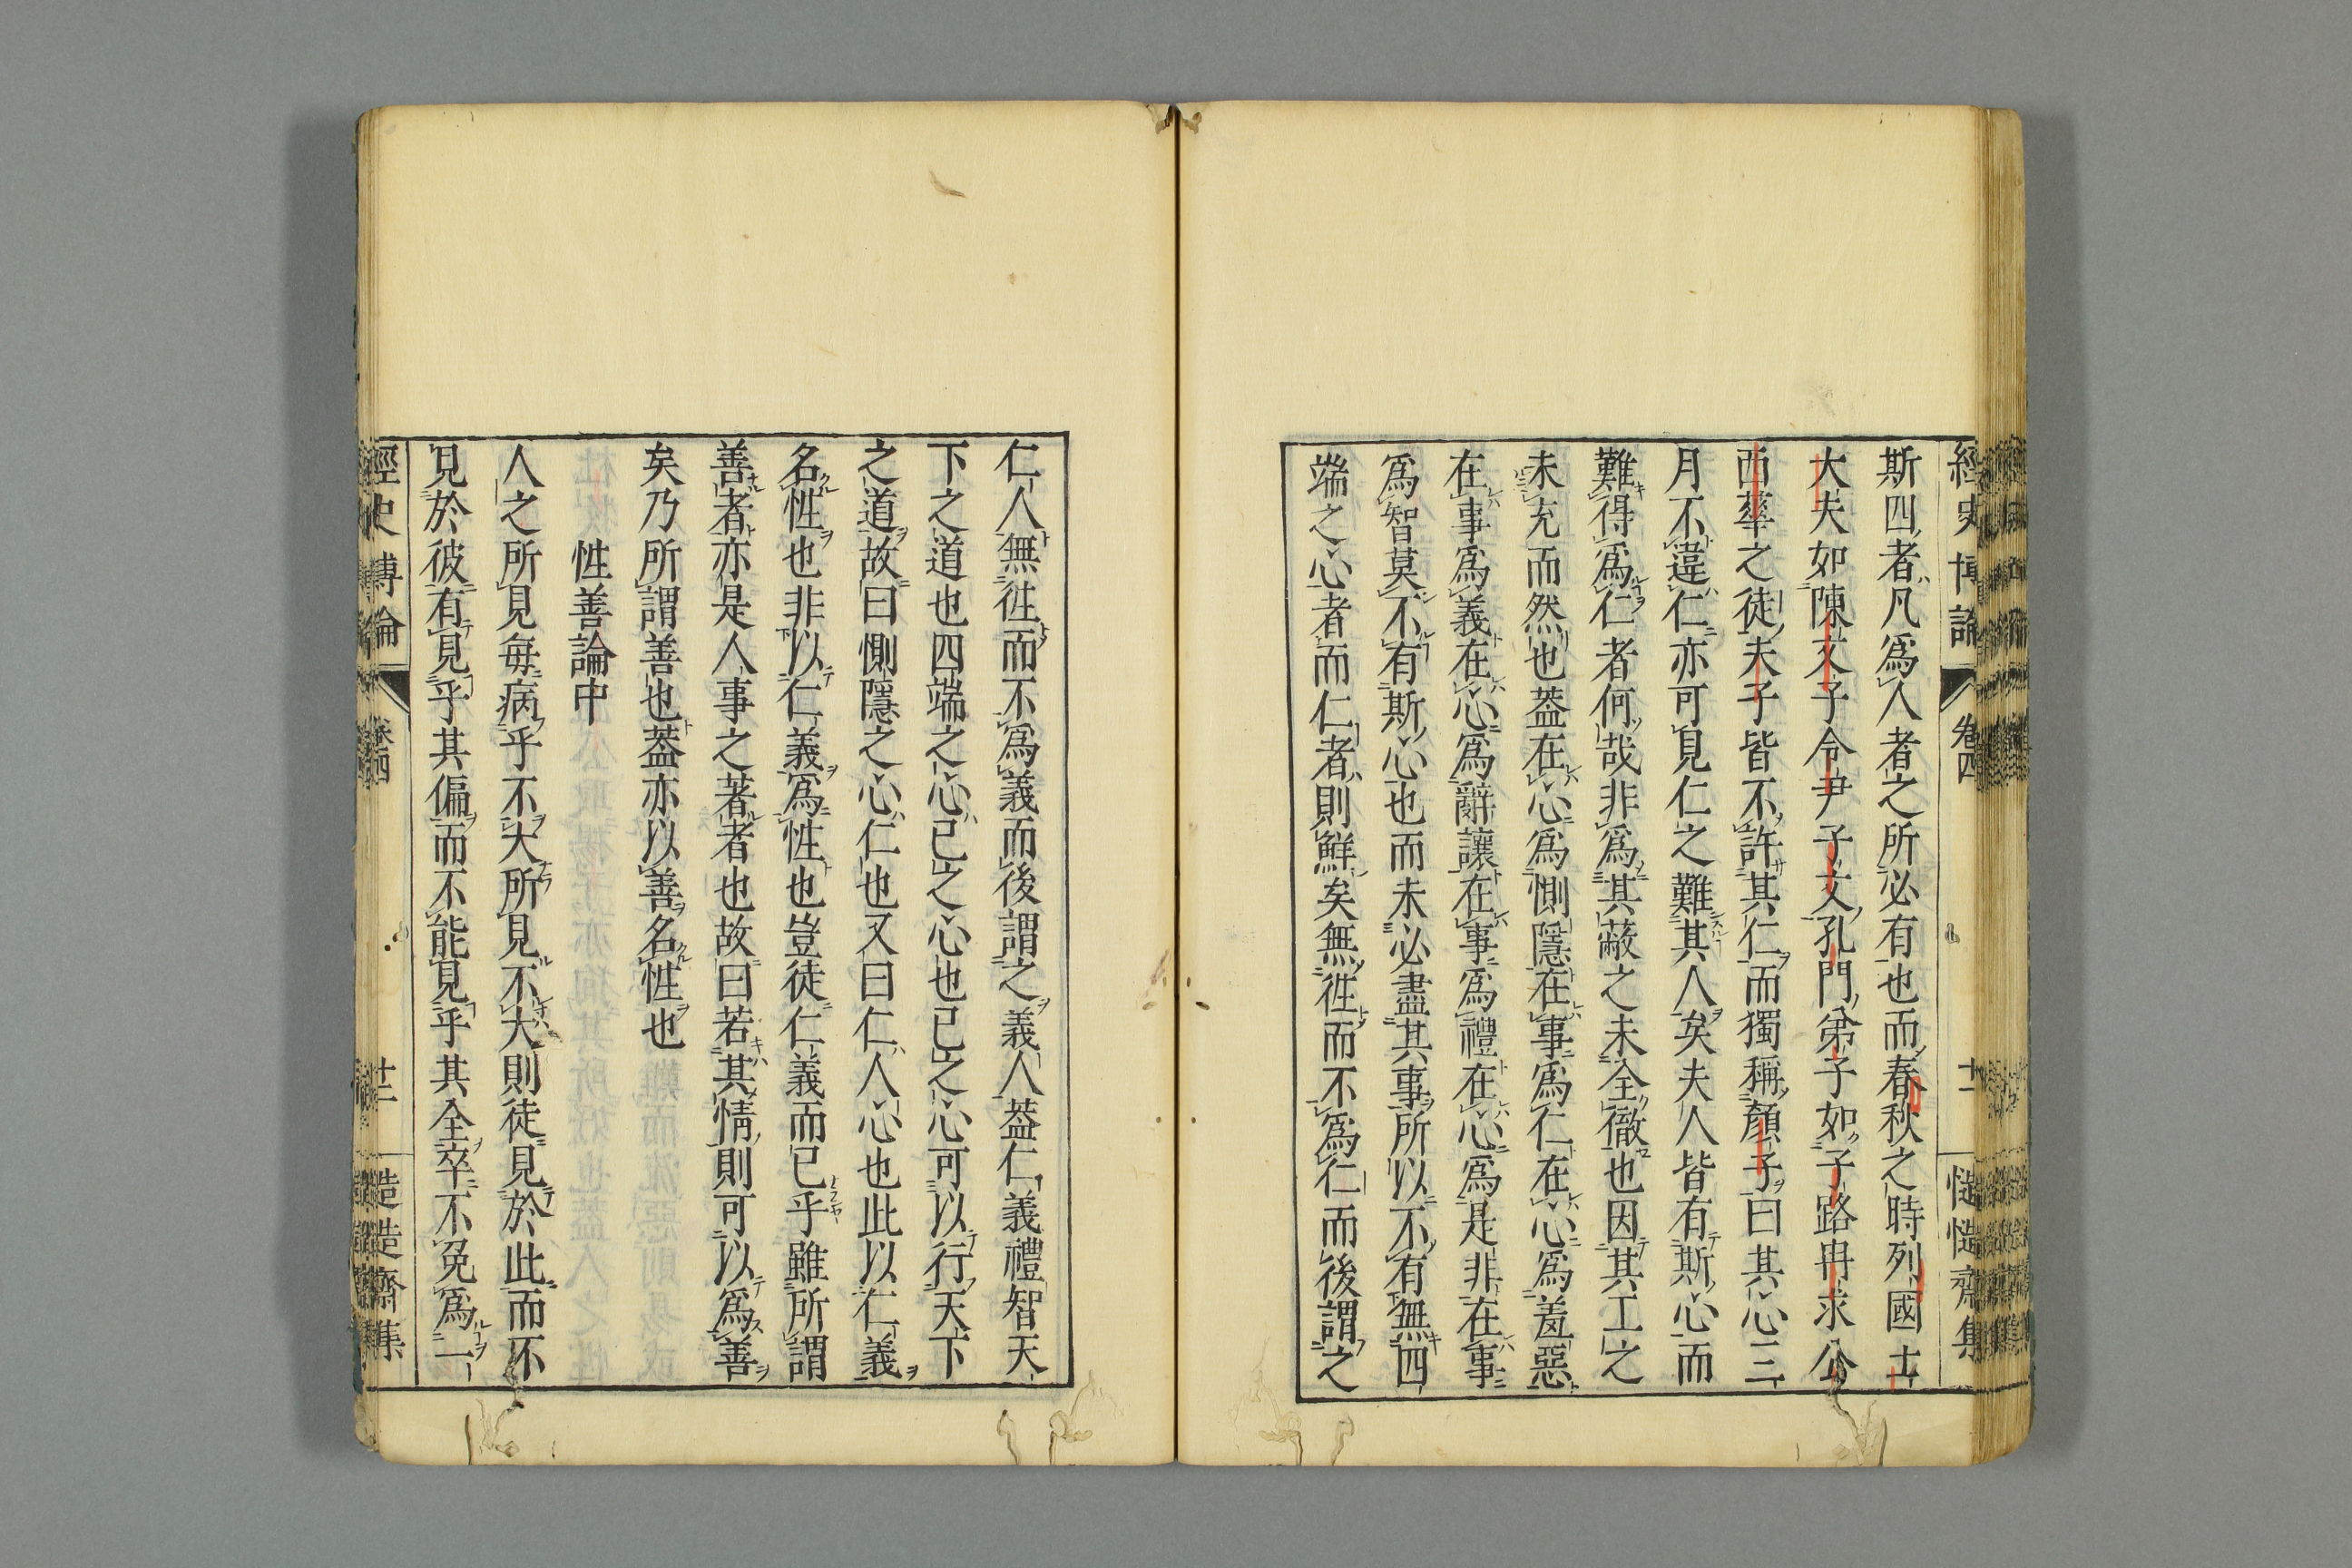 經史博論 卷四 十二 慥慥齋集
斯四者凡爲人者之所必有也而春秋之時列國士
大夫如陳文子令尹子文孔門弟子如子路冉求公
西華之徒夫子皆不許其仁而獨稱顏子曰其心三
月不違仁亦可見仁之難其人矣夫人皆有斯心而
難得爲仁者何哉非爲其蔽之未全徹也因其工之
未充而然也葢在心爲惻隱在事爲仁在心爲羞惡
在事爲義在心爲辭讓在事爲禮在心爲是非在事
爲智莫不有斯心也而未必盡其事所以不有無四
端之心者而仁者則鮮矣無徃而不爲仁而後謂之
仁人無徃而不爲義而後謂之義人葢仁義禮智天
下之道也四端之心己之心也己之心可以行天下
之道故曰惻隱之心仁也又曰仁人心也此以仁義
名性也非以仁義爲性也豈徒仁義而已乎雖所謂
善者亦是人事之著者也故曰若其情則可以爲善
矣乃所謂善也葢亦以善名性也
性善論中
人之所見毎病乎不大所見不大則徒見於此而不
見於彼有見乎其偏而不能見乎其全卒不免爲一
經史博論 卷四 十二 慥慥齋集